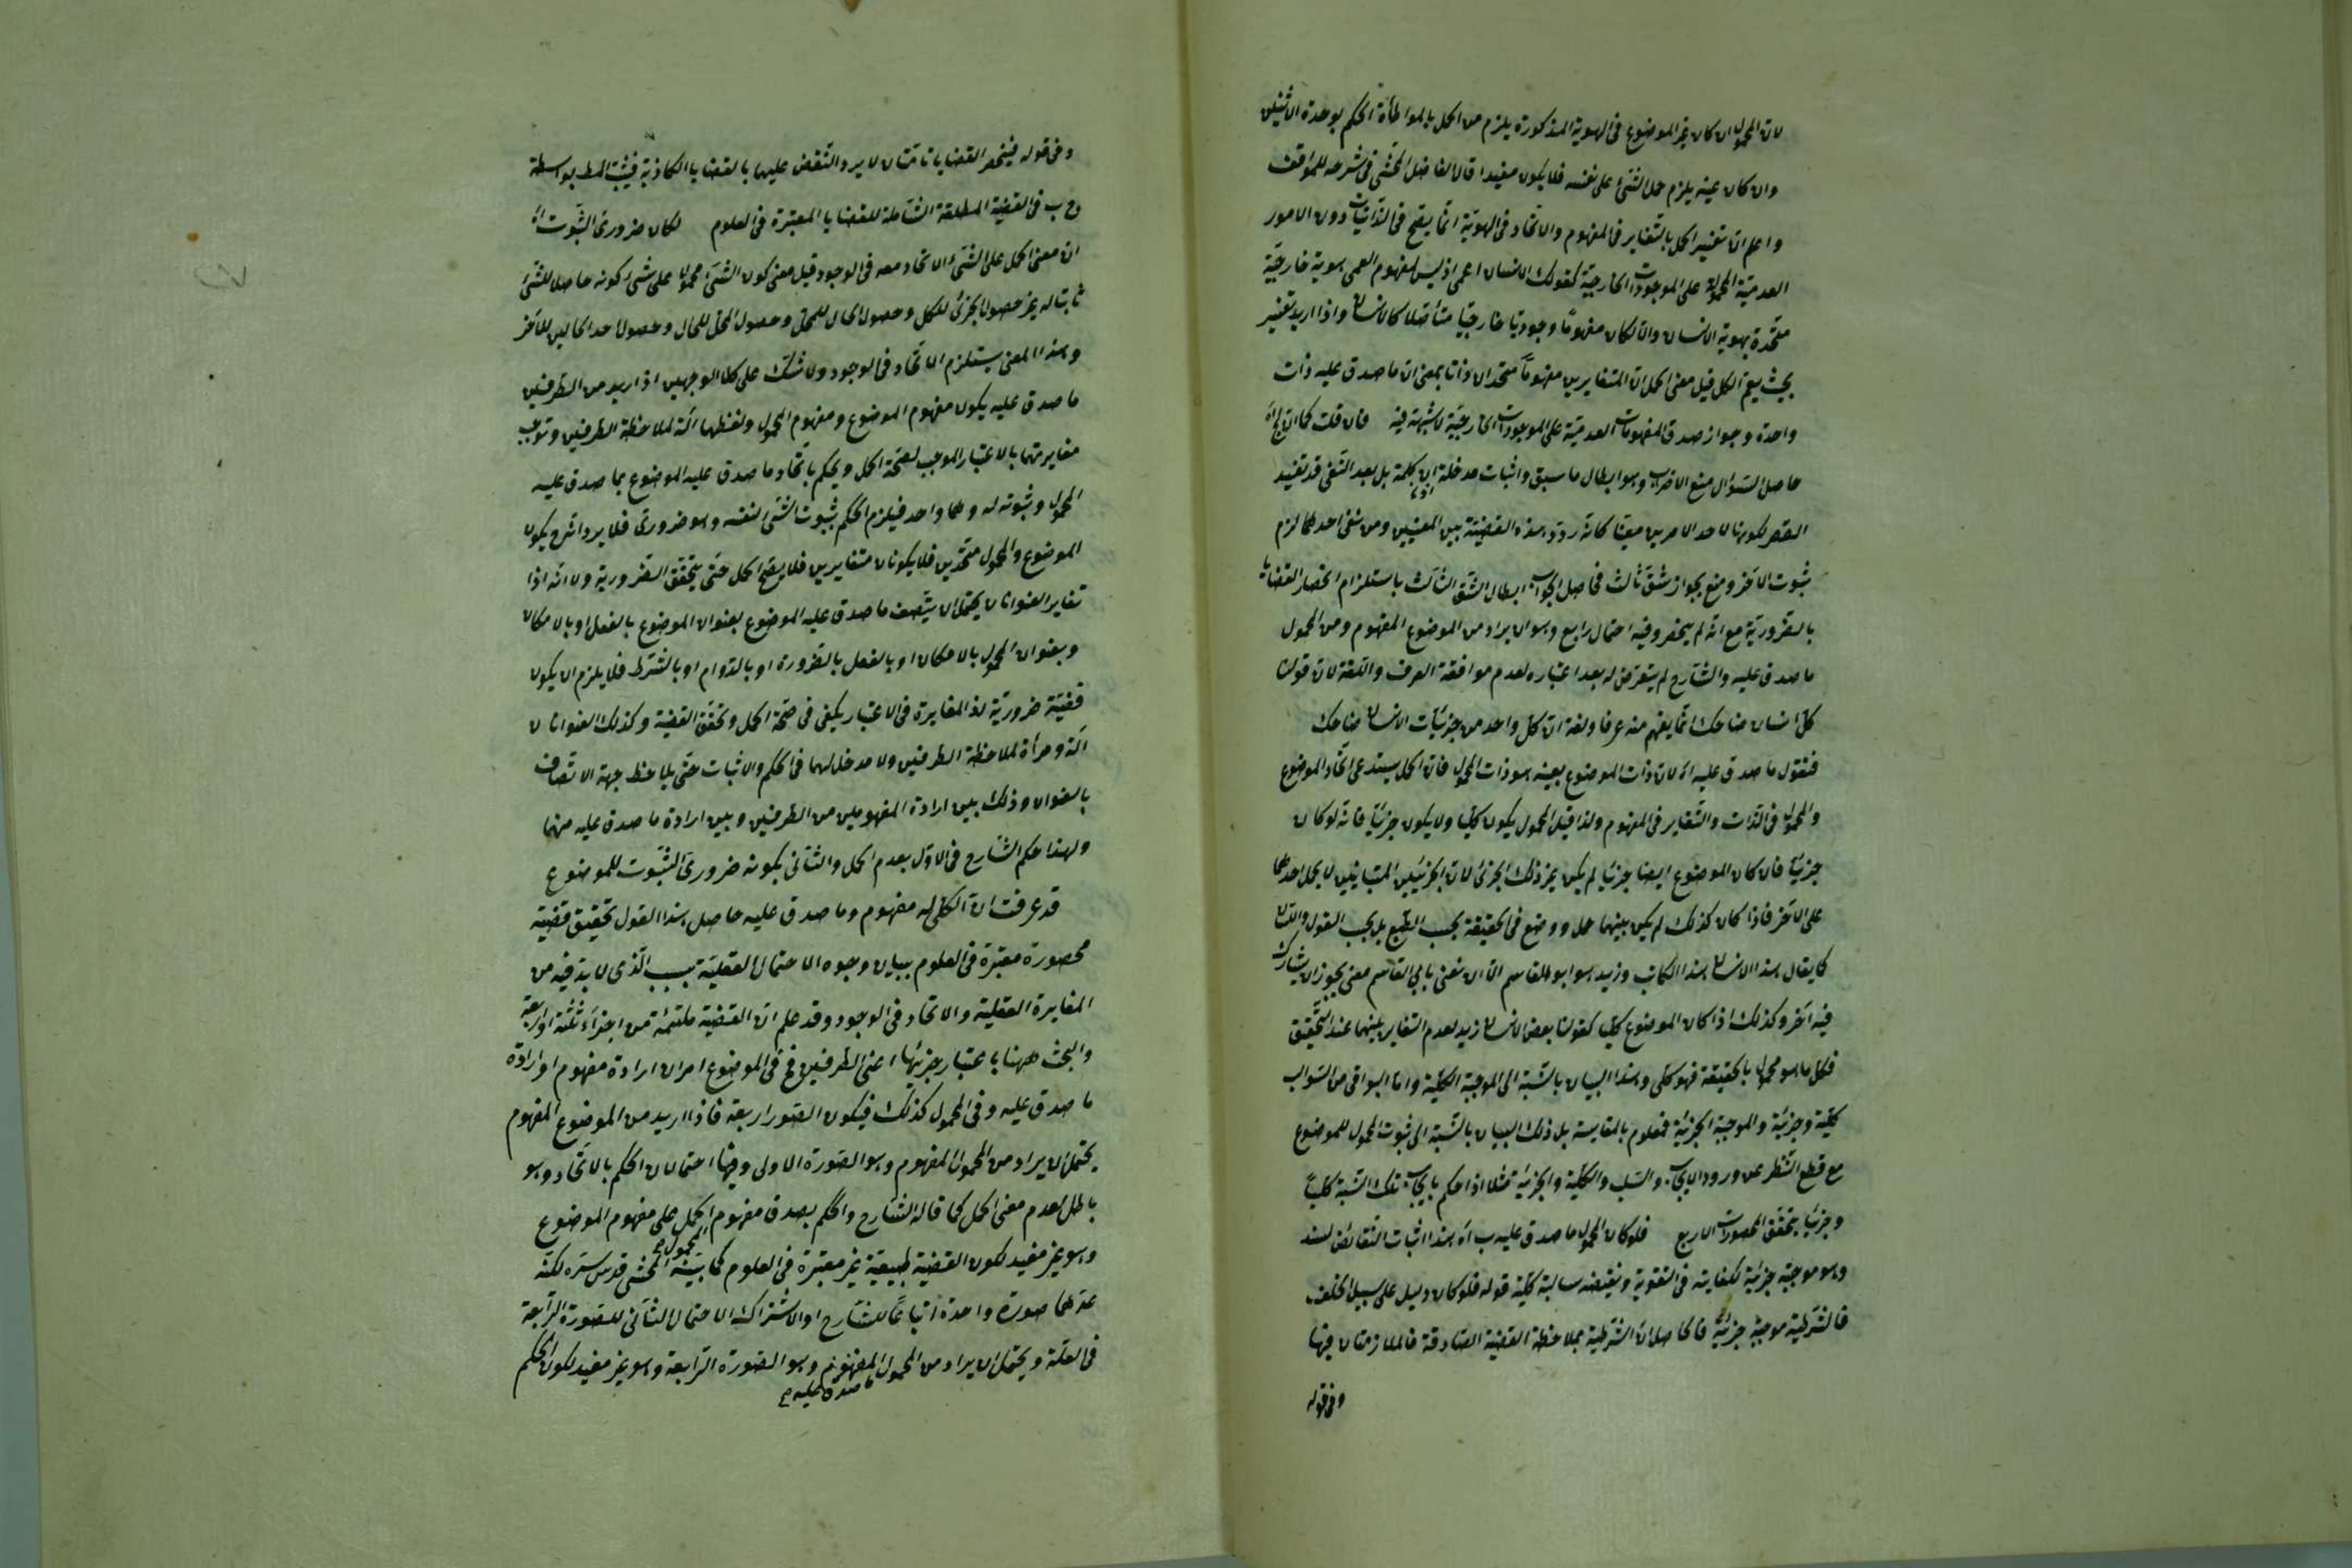 لان المحمول ان كان غير الموضوع فى الهوية المذكورة يلزم من الحمل بالمواطأة الحكم بوحدة الاثنين
وان كان عينه يلزم حمل الشئ على نفسه فلا يكون مفيدا قال الفاضل المحشى فى شرحه للمواقف
واعلم ان تفسير الحمل بالتغاير فى المفهوم والاتحاد فى الهوية انما يصح فى الذاتيات دون الامور
العدمية المحمولة على الموجودات الخارجية كقولك الانسان اعمى اذ ليس لمفهوم العمى هوية خارجية
متحدة بهوية الانسان والا لكان مفهوما وجوديا خارجيا متأصلا كالانسان واذا اريد تفسير
بحيث يعم الكل قيل معنى الحمل ان المتغايرين مفهوما متحدان ذاتا بمعنى ان ما صدق عليه ذات
واحدة وجواز صدق المفهومات العدمية على الموجودات الخارجية لا شبهة فيه فان قلت كما ان
حاصل السؤال منع الاضراب وهو ابطال ما سبق واثبات مدخلة اى كلمة بل بعد النفى قد تفيد
القصر لكونها لاحد الامرين معينا كانه ردد هذه القضية بين المعنيين ومن نفى احدهما لزم
ثبوت الآخر ومنع بجواز شق ثالث فحاصل الجواب ابطال الشق الثالث باستلزام انحصار القضايا
بالضرورية مع انه لم ينحصر وفيه احتمال رابع وهو ان يراد من الموضوع المفهوم ومن المحمول
ما صدق عليه والشارح لم يتعرض له بعد اعتباره لعدم موافقة العرف واللغة لان قولنا
كل انسان ضاحك انما يفهم منه عرفا ولغة ان كل واحد من جزئيات الانسان ضاحك
فنقول ما صدق عليه اه لان ذات الموضوع بعينه هو ذات المحمول فان الحمل يستدعى اتحاد الموضوع
والمحمول فى الذات والتغاير فى المفهوم ولذا قيل المحمول يكون كليا ولا يكون جزئيا فانه لو كان
جزئيا فان كان الموضوع ايضا جزئيا لم يكن غير ذلك الجزئى لان الجزئيين المتباينين لا يحمل احدهما
على الآخر فاذا كان كذلك لم يكن بينهما حمل ووضع فى الحقيقة بحسب الطبع بل بحسب القول واللسان
كما يقال هذا الانسان هذا الكاتب وزيد هو ابو القاسم الا ان نعنى بابى القاسم معنى يجوز ان يشارك
فيه آخر وكذلك اذا كان الموضوع كليا كقولنا بعض الانسان زيد لعدم التغاير بينهما عند التحقيق
فكل ما هو محمول بالحقيقة فهو كلى وهذا البيان بالنسبة الى الموجبة الكلية واما البواقى من السوالب
كلية وجزئية والموجبة الجزئية فمعلوم بالمقايسة بل ذلك البيان بالنسبة الى ثبوت المحمول للموضوع
مع قطع النظر عن ورود الايجاب والسلب والكلية والجزئية مثلا اذا حكم بايجاب تلك النسبة كليا
وجزئيا يتحقق المحصورات الاربع فلو كان المحمول ما صدق عليه ب اه هذا اثبات النقائض لسند
وهو موجبة جزئية لكفايته فى التقوية ونقيضه سالبة كلية قوله فلو كان دليل على سبيل الخلف
فالشرطية موجبة جزئية فالحاصل ان الشرطية بملاحظة القضية الصادقة فالملازمتان فيها
وفى قوله
وفى قوله فينحصر القضايا تامتان لا يرد النقض عليهما بالقضايا الكاذبة فيثبت المط بواسطة
ج ب فى القضية المطلقة الشاملة للقضايا المعتبرة فى العلوم لكان ضرورى الثبوت اه
ان معنى الحمل على الشئ الاتحاد معه فى الوجود قيل معنى كون الشئ محمولا على شئ كونه حاصلا للشئ
ثابتا له غير حصول الجزئ للكل وحصول الحال للمحل وحصول المحل للحال وحصول احد الحالين للآخر
وهذا المعنى يستلزم الاتحاد فى الوجود ولا شك على كلا الوجهين اذا اريد من الطرفين
ما صدق عليه يكون مفهوم الموضوع ومفهوم المحمول ولفظهما آلة لملاحظة الطرفين وتوجب
مغايرتهما بالاعتبار الموجب لصحة الحمل ويحكم باتحاد ما صدق عليه الموضوع بما صدق عليه
المحمول وثبوته له وهما واحد فيلزم الحكم بثبوت الشئ لنفسه وهو ضرورى فلا يرد انه ح يكون
الموضوع والمحمول متحدين فلا يكونان متغايرين فلا يصح الحمل حتى يتحقق الضرورية ولا انه اذا
تغاير العنوانان يحتمل ان يتصف ما صدق عليه الموضوع بعنوان الموضوع بالفعل او بالامكان
وبعنوان المحمول بالامكان او بالفعل بالضرورة او بالدوام او بالشرط فلا يلزم ان يكون
قضية ضرورية لذا المغايرة فى الاعتبار يكفى فى صحة الحمل وتحقق القضية وكذلك العنوانان
آلة ومرآة لملاحظة الطرفين ولا مدخل لهما فى الحكم والاثبات حتى يلاحظ جهة الاتصاف
بالعنوان وذلك بين ارادة المفهومين من الطرفين وبين ارادة ما صدق عليه منهما
ولهذا حكم الشارح فى الاول بعدم الحمل والثانى بكونه ضرورى الثبوت للموضوع
قد عرفت ان الكلى له مفهوم وما صدق عليه حاصل هذا القول تحقيق قضية
محصورة معتبرة فى العلوم ببيان وجوه الاحتمال العقلية بسبب الذى لا بد فيه من
المغايرة العقلية والاتحاد فى الوجود وقد علم ان القضية ملتئمة من اجزاء ثلثة او اربعة
والبحث ههنا باعتبار جزئها اعنى الطرفين فح فى الموضوع امران ارادة مفهوم او ارادة
ما صدق عليه وفى المحمول كذلك فيكون الصور اربعة فاذا اريد من الموضوع المفهوم
يحتمل ان يراد من المحمول المفهوم وهو الصورة الاولى وفيها احتمالان الحكم بالاتحاد وهو
باطل لعدم معنى الحمل كما قاله الشارح والحكم بصدق مفهوم الحمل على مفهوم الموضوع
المحمول صح
وهو غير مفيد لكون القضية طبيعية غير معتبرة فى العلوم كما بينه المحشى قدس سره لكنه
عدهما صورة واحدة اتباعا للشارح او لاشتراك الاحتمال الثانى للصورة الرابعة
فى العلة ويحتمل ان يراد من المحمول المفهوم وهو الصورة الرابعة وهو غير مفيد لكون الحكم
ما صدق عليه صح